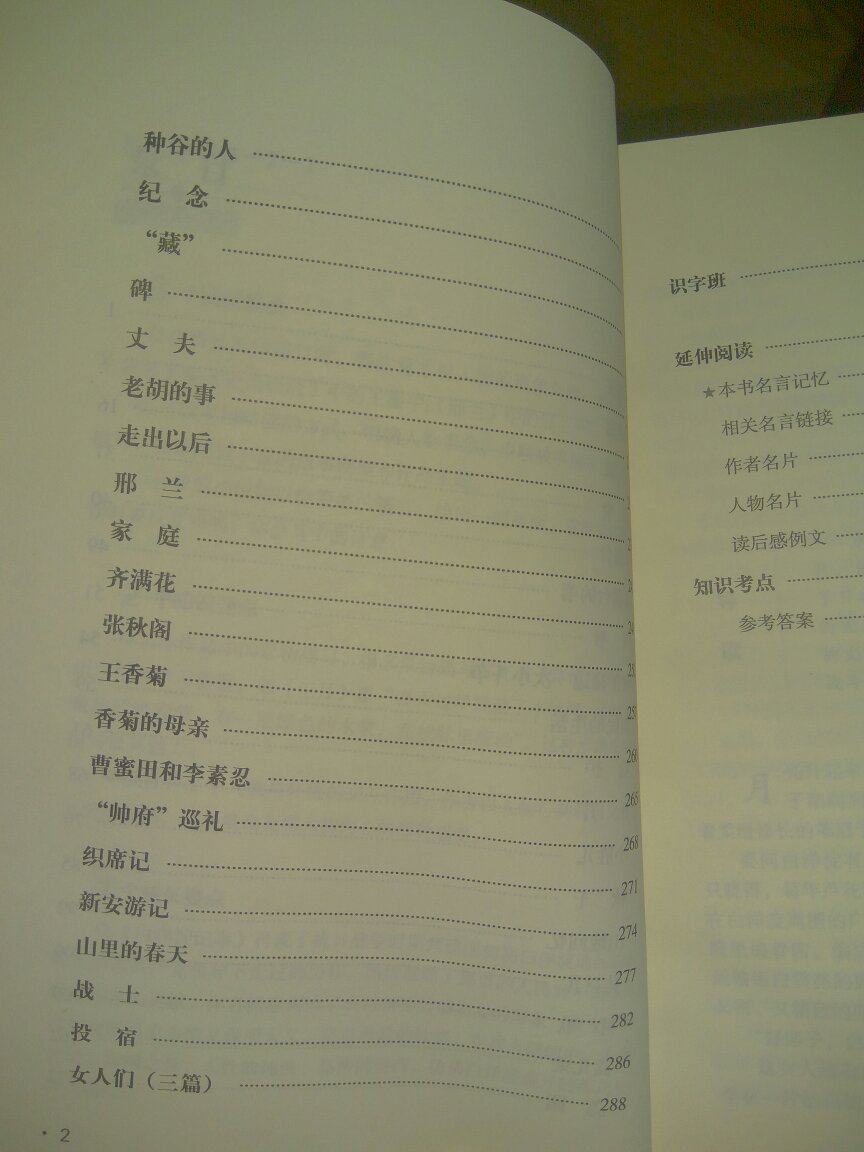 种谷的人
纪 念
“藏”
碑
丈 夫
老胡的事
走出以后
邢 兰
家 庭
齐满花
张秋阁
王香菊
香菊的母亲 260
曹蜜田和李素忍 265
“帅府”巡礼 268
织席记 271
新安游记 274
山里的春天 277
战 士 282
投 宿 286
女人们（三篇） 288
· 2
识字班
延伸阅读
★本书名言记忆
相关名言链接
作者名片
人物名片
读后感例文
知识考点
参考答案